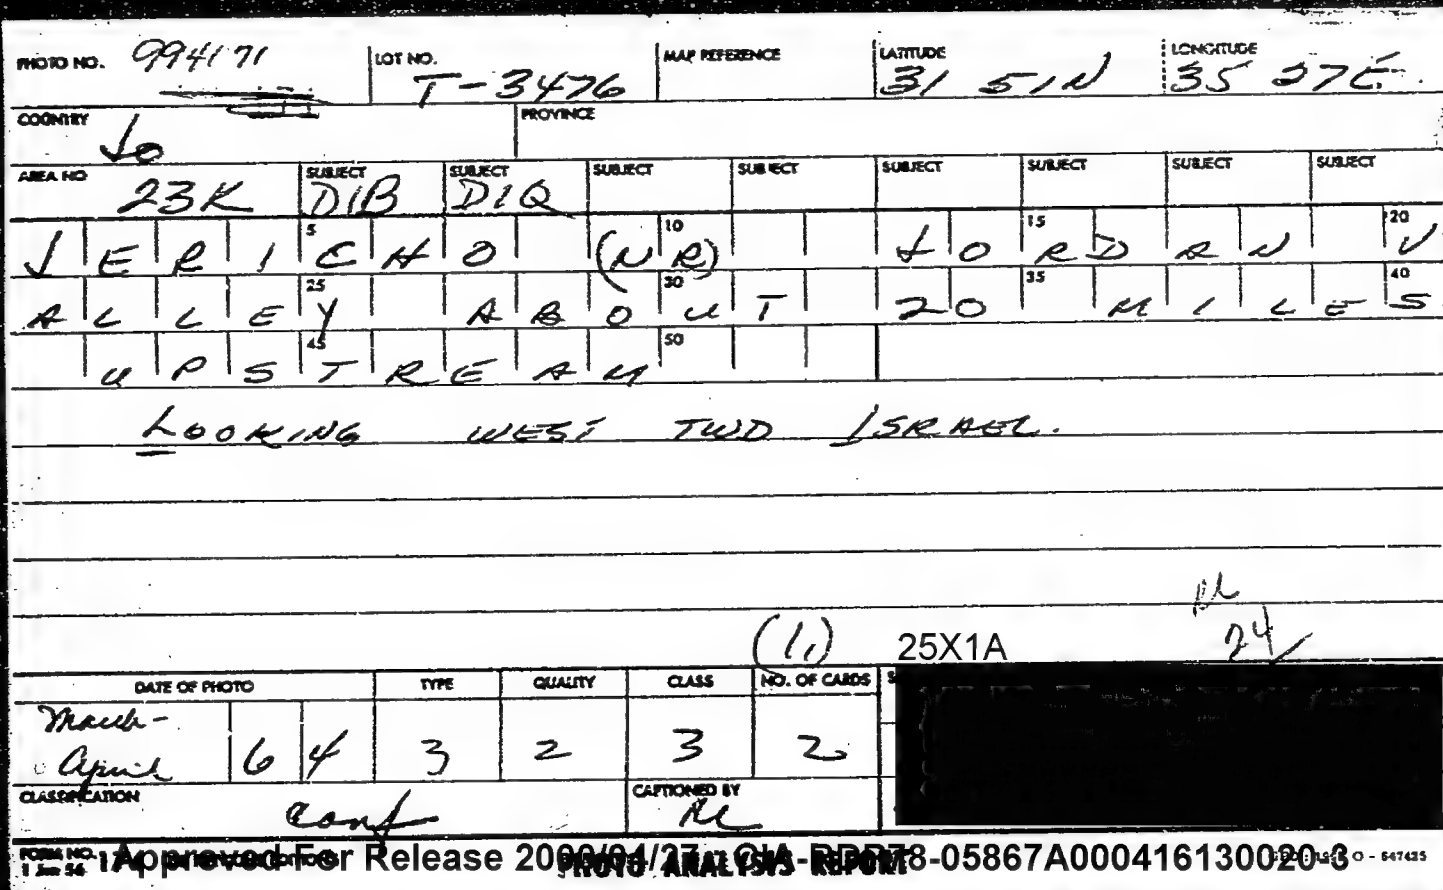 PHOTO NO. 994171 LOT NO. T-3476 MAP REFERENCE LATITUDE 31 51N LONGITUDE 35 27E
COUNTRY Jo PROVINCE
AREA NO 23K SUBJECT DIB SUBJECT DIQ SUBJECT SUBJECT SUBJECT SUBJECT SUBJECT SUBJECT
JERICHO (NR) JORDAN V
5 10 15 20
ALLEY ABOUT 20 MILES
25 30 35 40
UPSTREAM
45 50
LOOKING WEST TWD ISRAEL.
24
(1,) 25X1A
DATE OF PHOTO TYPE QUALITY CLASS NO. OF CARDS
March-
April 6 4 3 2 3 2
CLASSIFICATION Conf CAPTIONED BY
FORM NO.
1 Jun 56
Approved For Release 2000/04/27 : CIA-RDP78-05867A000416130020-3
PHOTO ANALYSIS REPORT
O - 547425